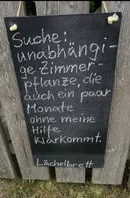 Suche:
unabhängi-
ge Zimmer-
pflanze, die
auch ein paar
Monate
ohne meine
Hilfe
klarkommt.
Lächelbrett